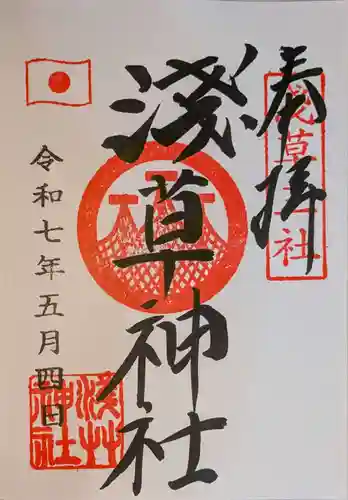 奉拝
浅草神社
淺草神社
令和七年五月四日
淺草神社